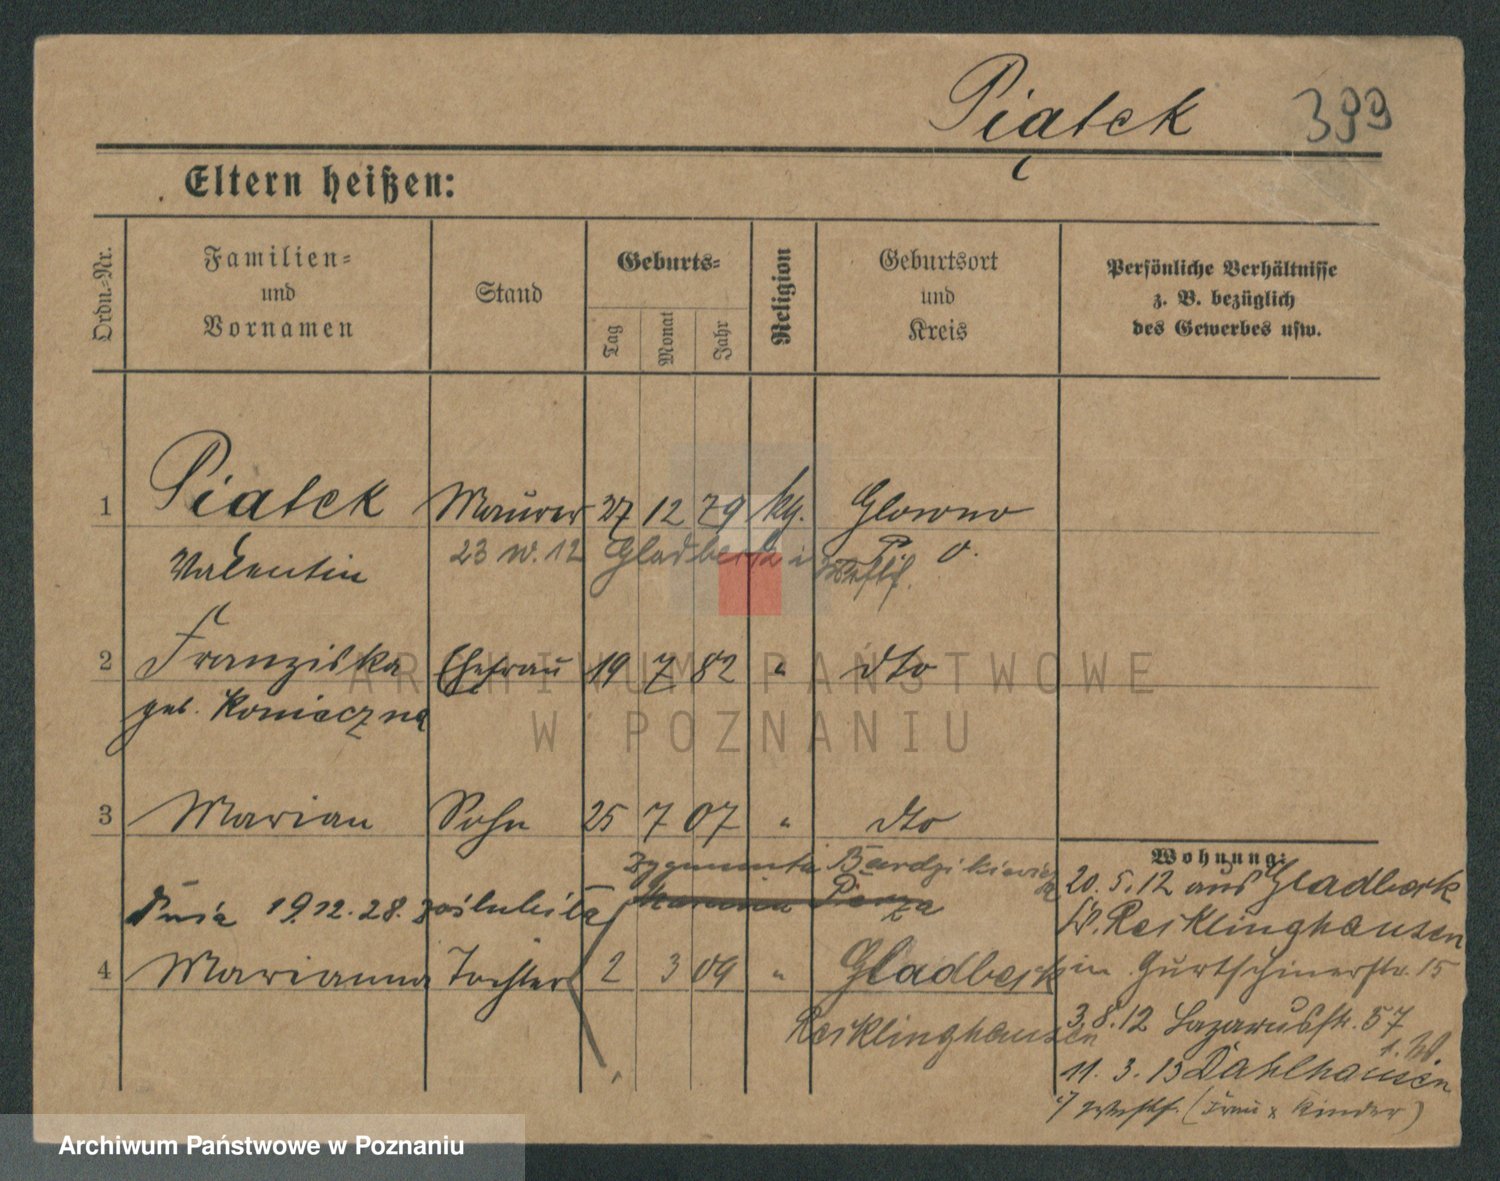 Piątek 399
Eltern heißen:
Ordn.-Nr.
Familien=
und
Vornamen
Stand
Geburts=
Tag
Monat
Jahr
Religion
Geburtsort
und
Kreis
Persönliche Verhältnisse
z. B. bezüglich
des Gewerbes usw.
1 Piątek Maurer 27 12 79 kg. Glowno
Valentin 23 12 Gladbeck i Westf. P. O.
2 Franziska Ehefrau 19 7 82 " dto
geb. Konieczna
3 Marian Sohn 25 7 07 " dto
Wohnung:
Zygmunta Bardzikiewicza
dnia 19.12.28. zaślubiła
4 Marianna Tochter 2 3 09 " Gladbeck
Recklinghausen
20.5.12 aus Gladbeck
Recklinghausen
in Gurtschinerstr. 15
3.8.12 Lazarusstr. 57
11.3.13 Dahlhausen
i/ Westf. (Frau & Kinder)
ARCHIWUM PAŃSTWOWE
W POZNANIU
Archiwum Państwowe w Poznaniu